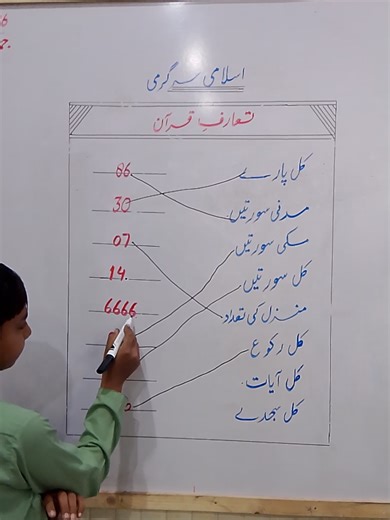 اسلامی سرگرمی
تعارفِ قرآن
کل پارے 86
مدنی سورتیں 30
مکی سورتیں 07
کل سورتیں 14
منزل کی تعداد 6666
کل رکوع
کل آیات
کل سجدے 2